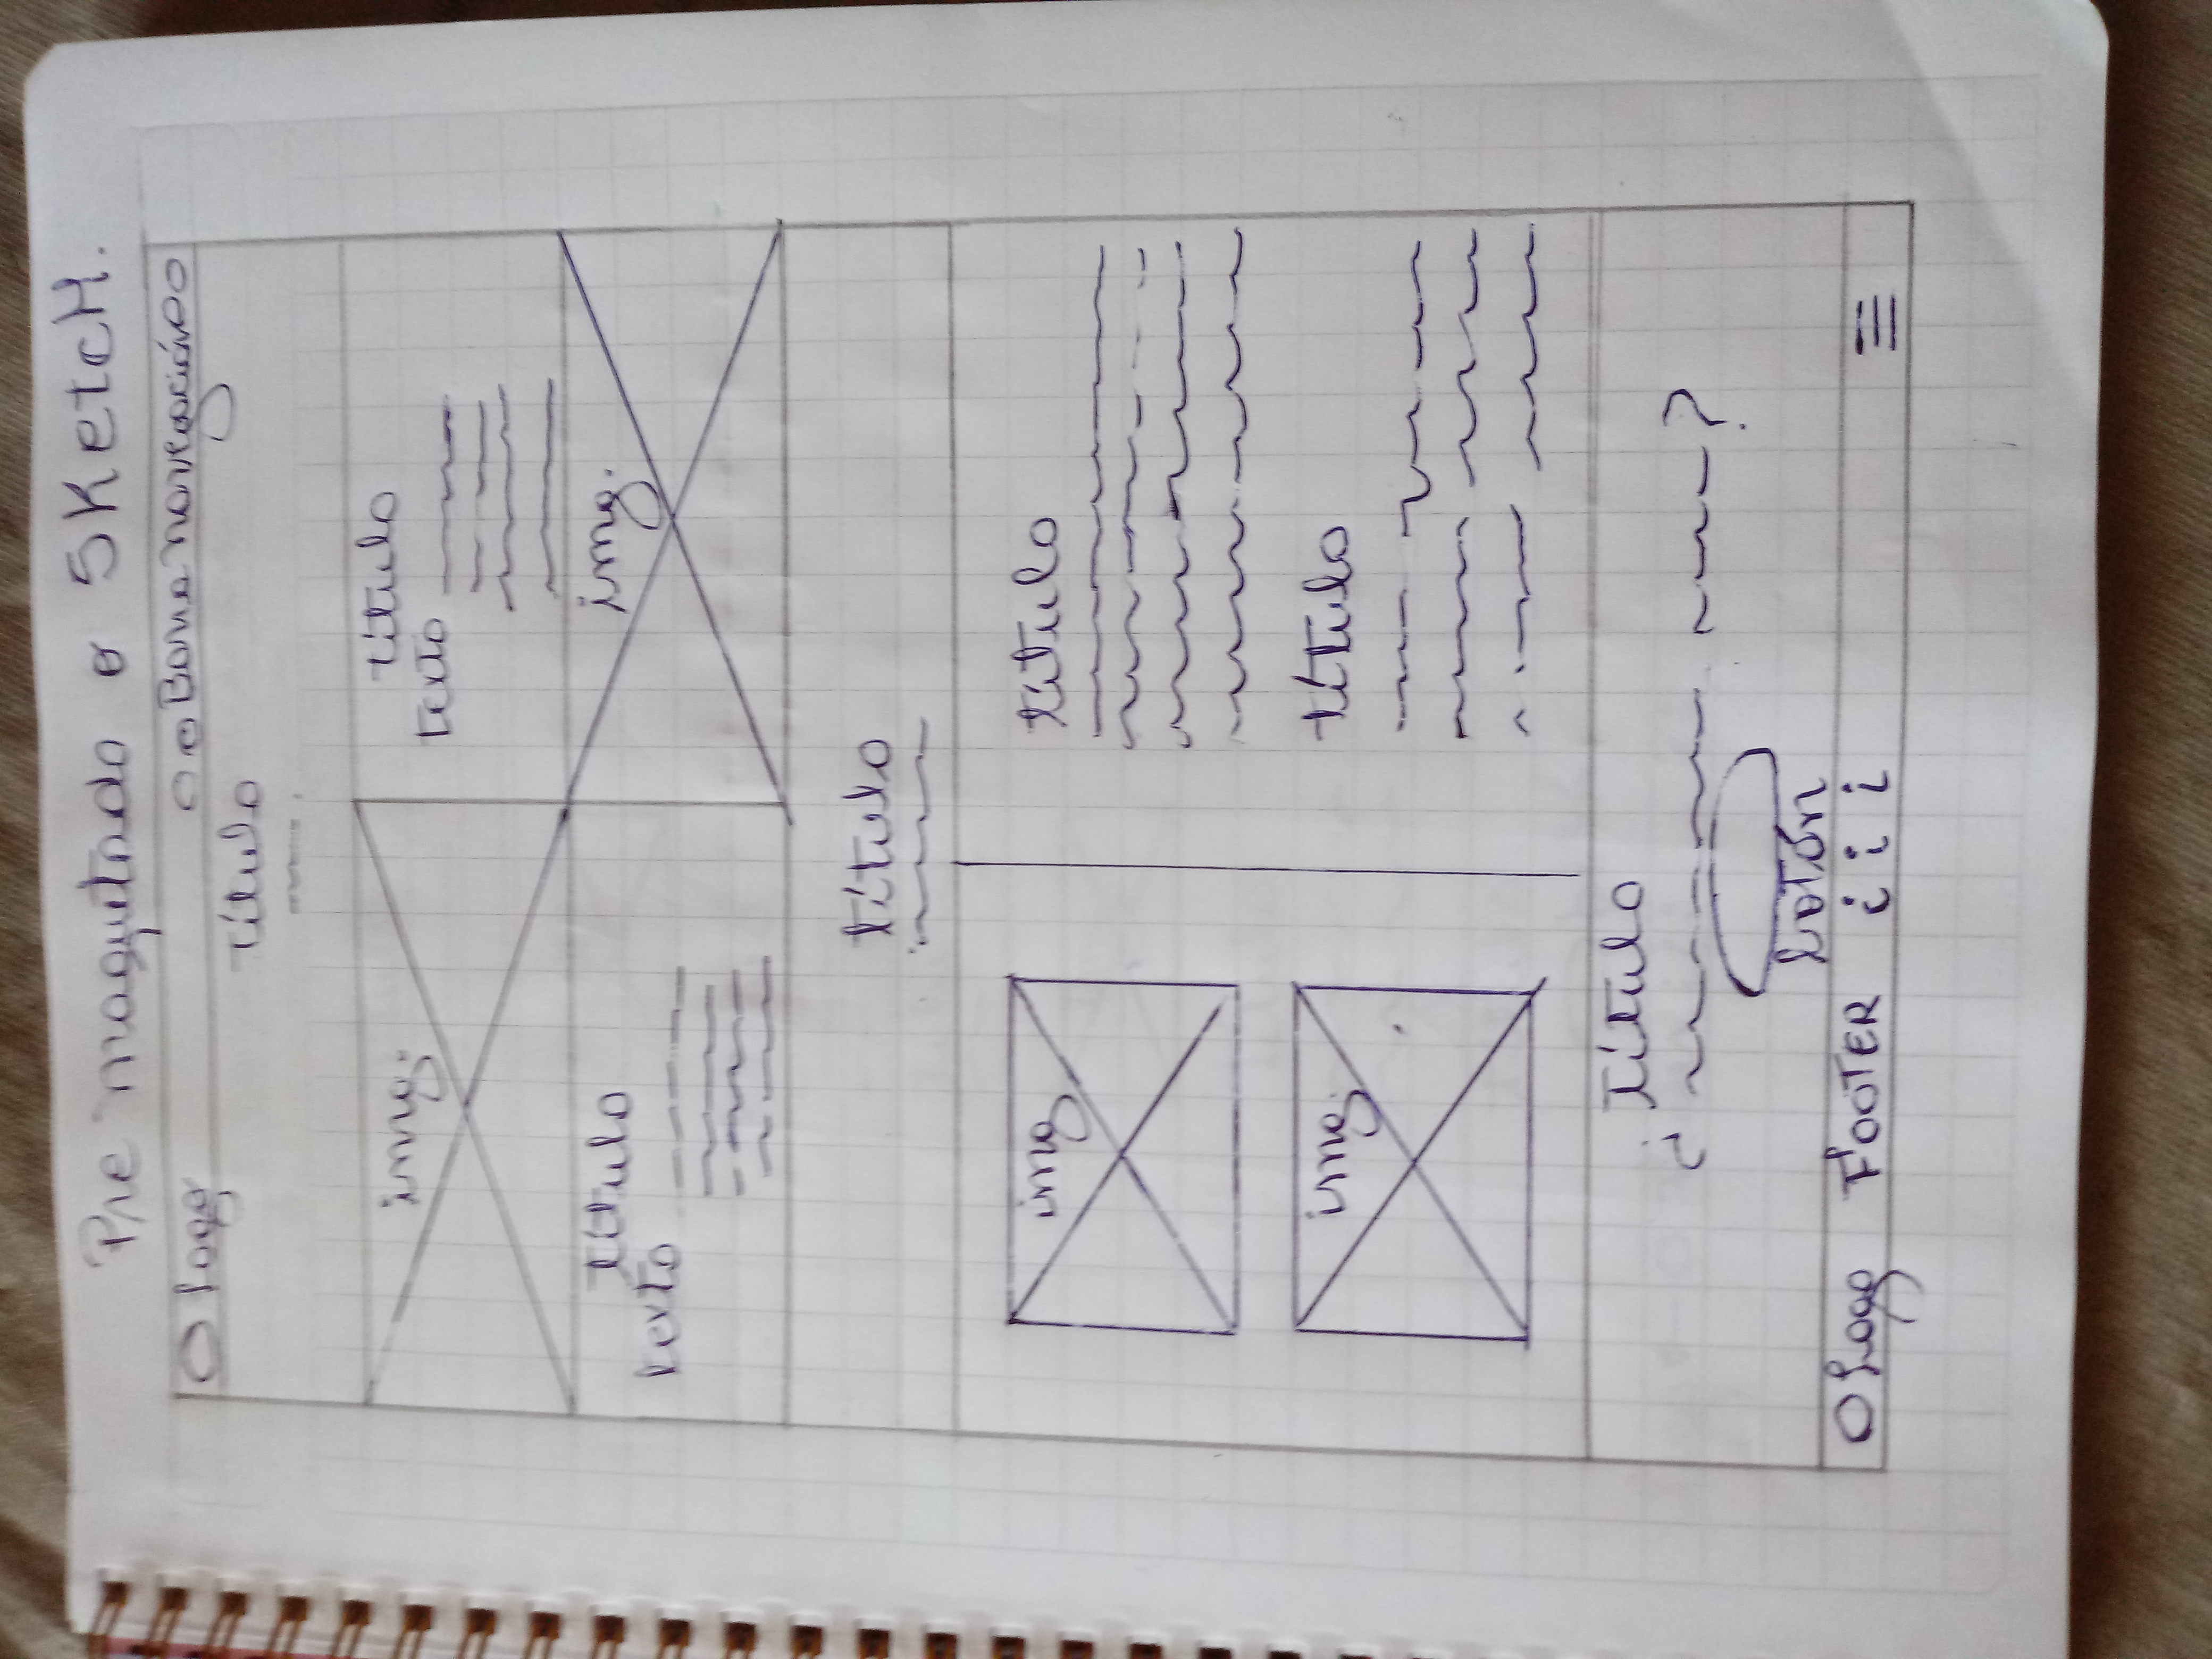 Pre maquetado o SKetcH.
Logo Barra navegación
título
img. título
texto
título img.
texto
título
img título
img. título
título
¿ ?
botón
Logo FOOTER i i i